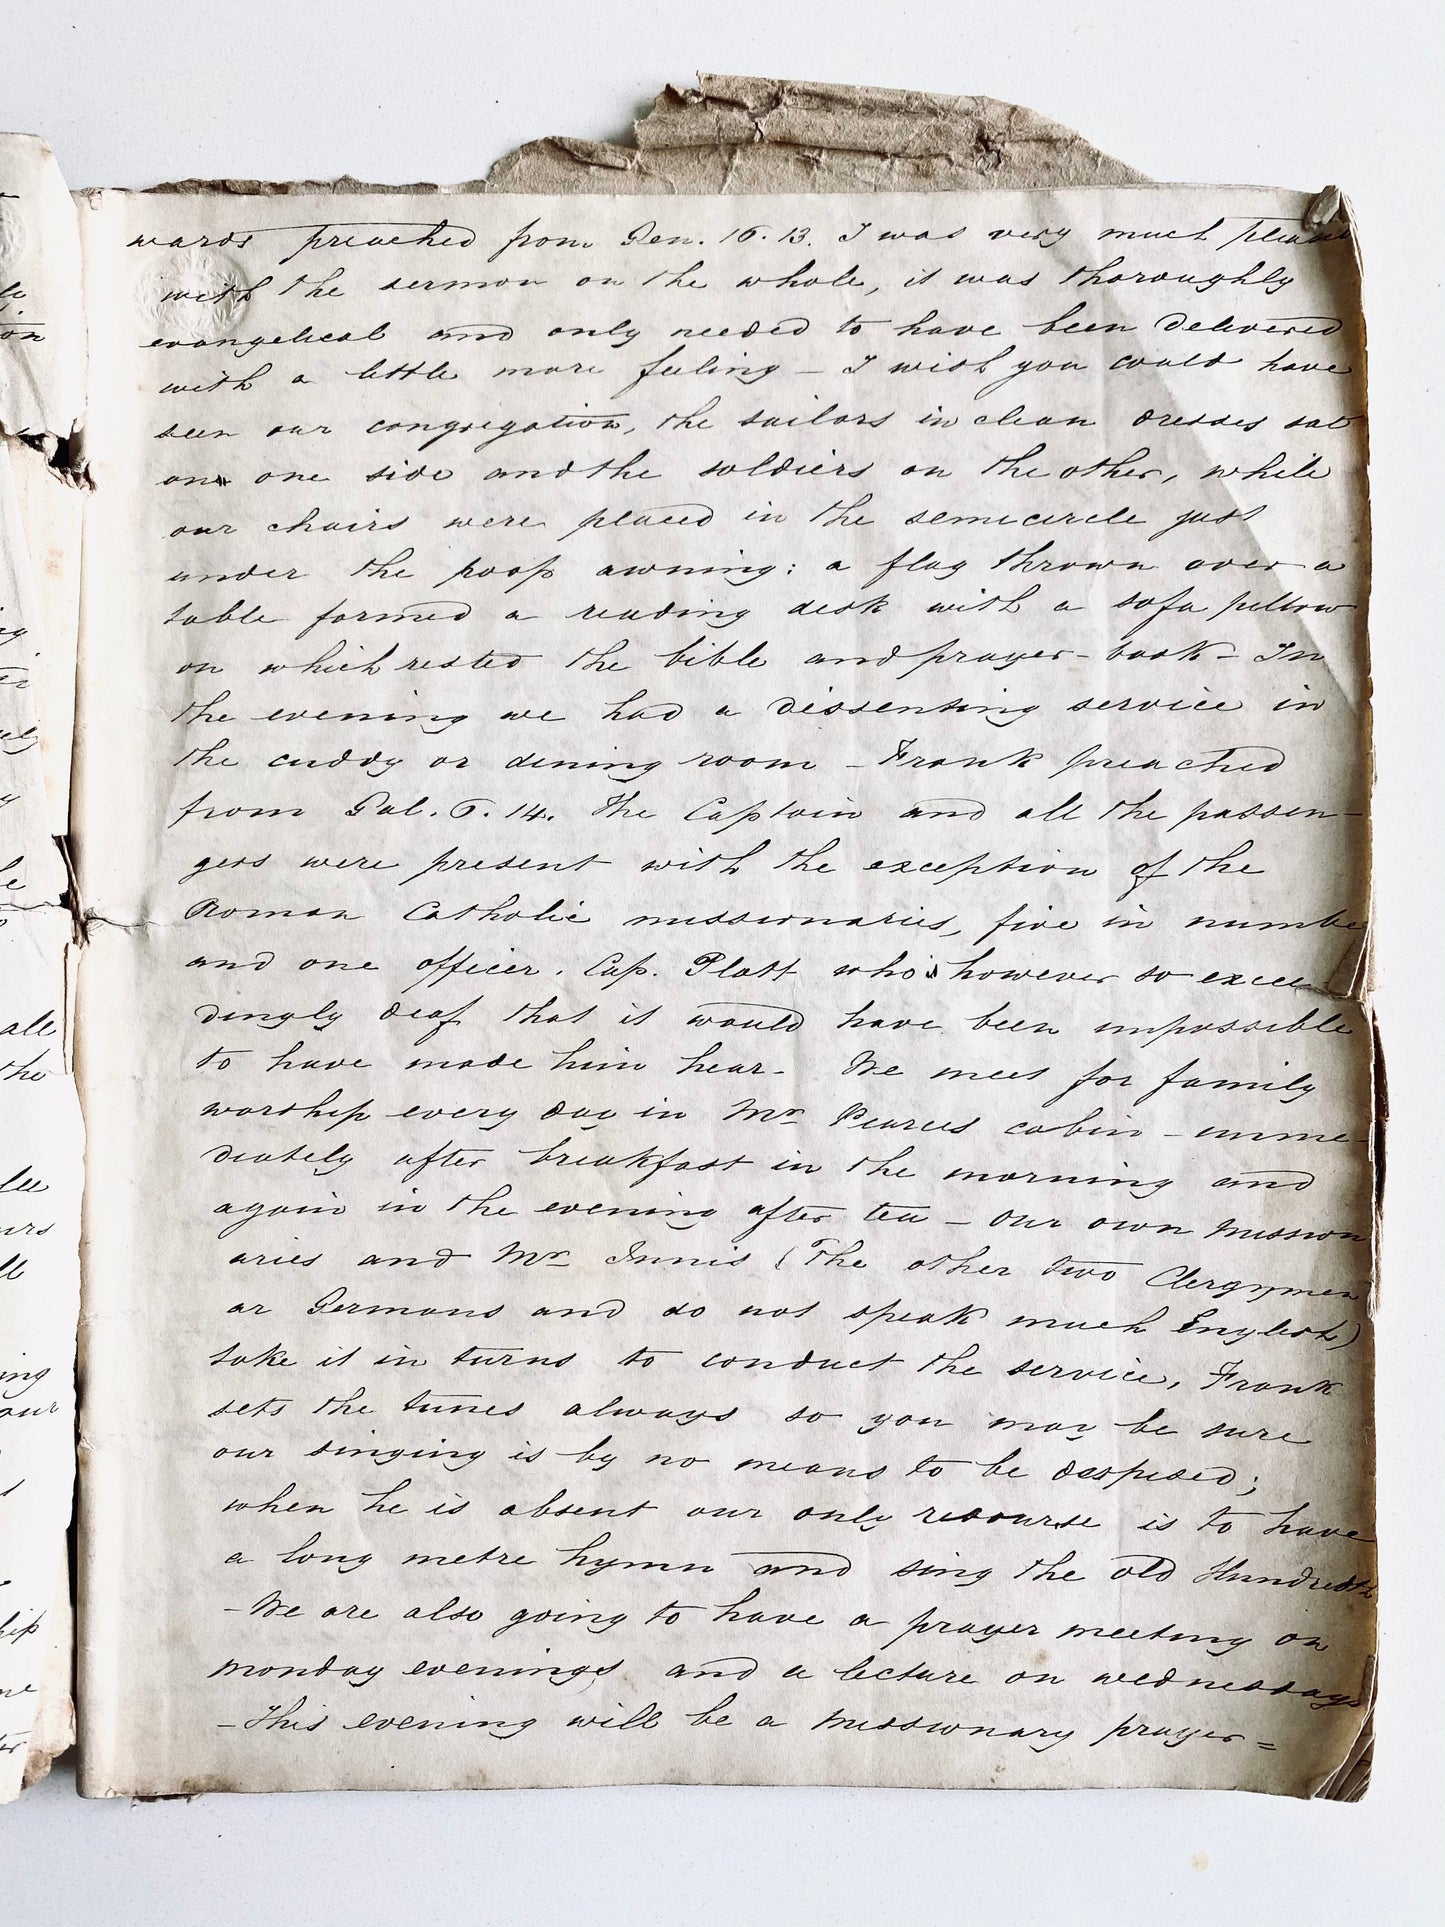 wards preached from Gen. 16. 13. I was very much pleased
with the sermon on the whole, it was thoroughly
evangelical and only needed to have been delivered
with a little more feeling – I wish you could have
seen our congregation, the sailors in clean dresses sat
on one side and the soldiers on the other, while
our chairs were placed in the semicircle just
under the poop awning: a flag thrown over a
table formed a reading desk with a sofa pillow
on which rested the bible and prayer-book – In
the evening we had a dissenting service in
the cuddy or dining room – Frank preached
from Gal. 6. 14. The Captain and all the passen-
gers were present with the exception of the
Roman Catholic missionaries, five in number
and one officer, Cap. Platt who is however so excee-
dingly deaf that it would have been impossible
to have made him hear – We meet for family
worship every day in Mr Pearces cabin – imme-
diately after breakfast in the morning and
again in the evening after tea – Our own mission
aries and Mr Innis (The other two Clergymen
ar Germans and do not speak much English)
take it in turns to conduct the service, Frank
sets the tunes always so you may be sure
our singing is by no means to be despised;
when he is absent our only resourse is to have
a long metre hymn and sing the old Hundredth
– We are also going to have a prayer meeting on
monday evenings and a lecture on wednesdays
– This evening will be a missionary prayer=
all
the